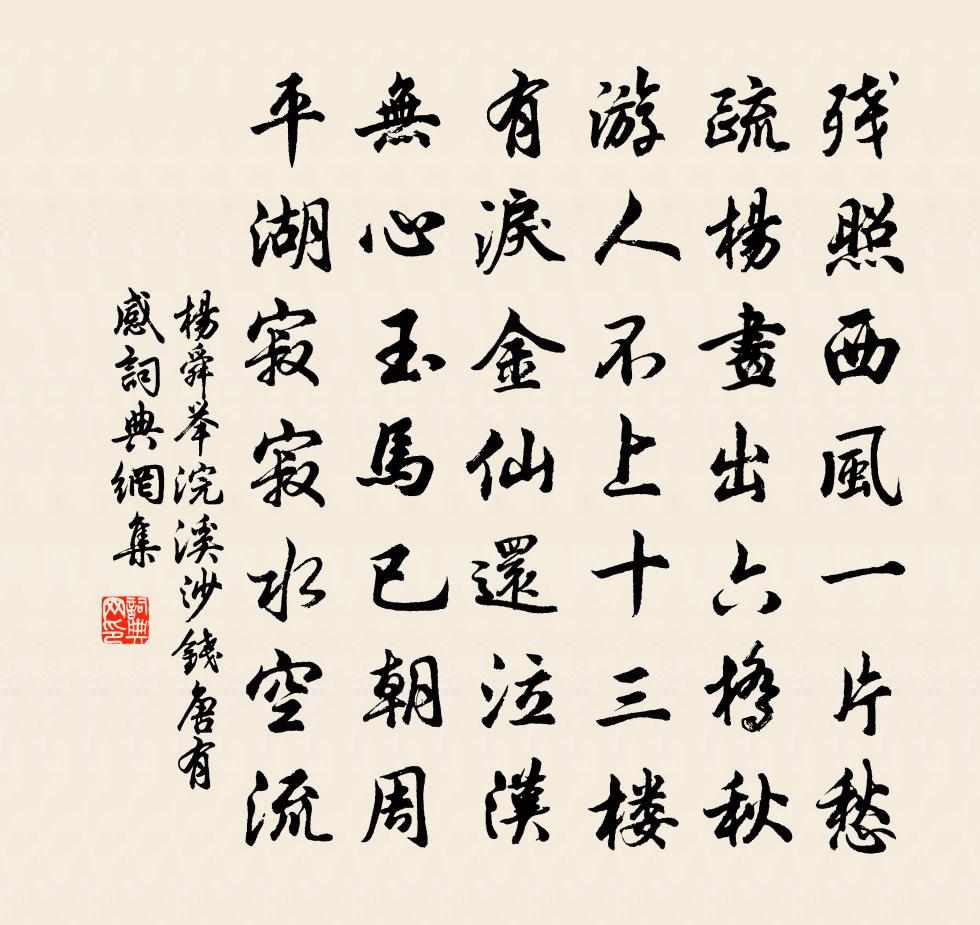 残照西风一片愁
疏楊畫出六橋秋
游人不上十三楼
有淚金仙還泣漢
無心玉馬已朝周
平湖寂寂水空流
楊舜举浣溪沙錢唐有
感詞典網集
詞典
网印